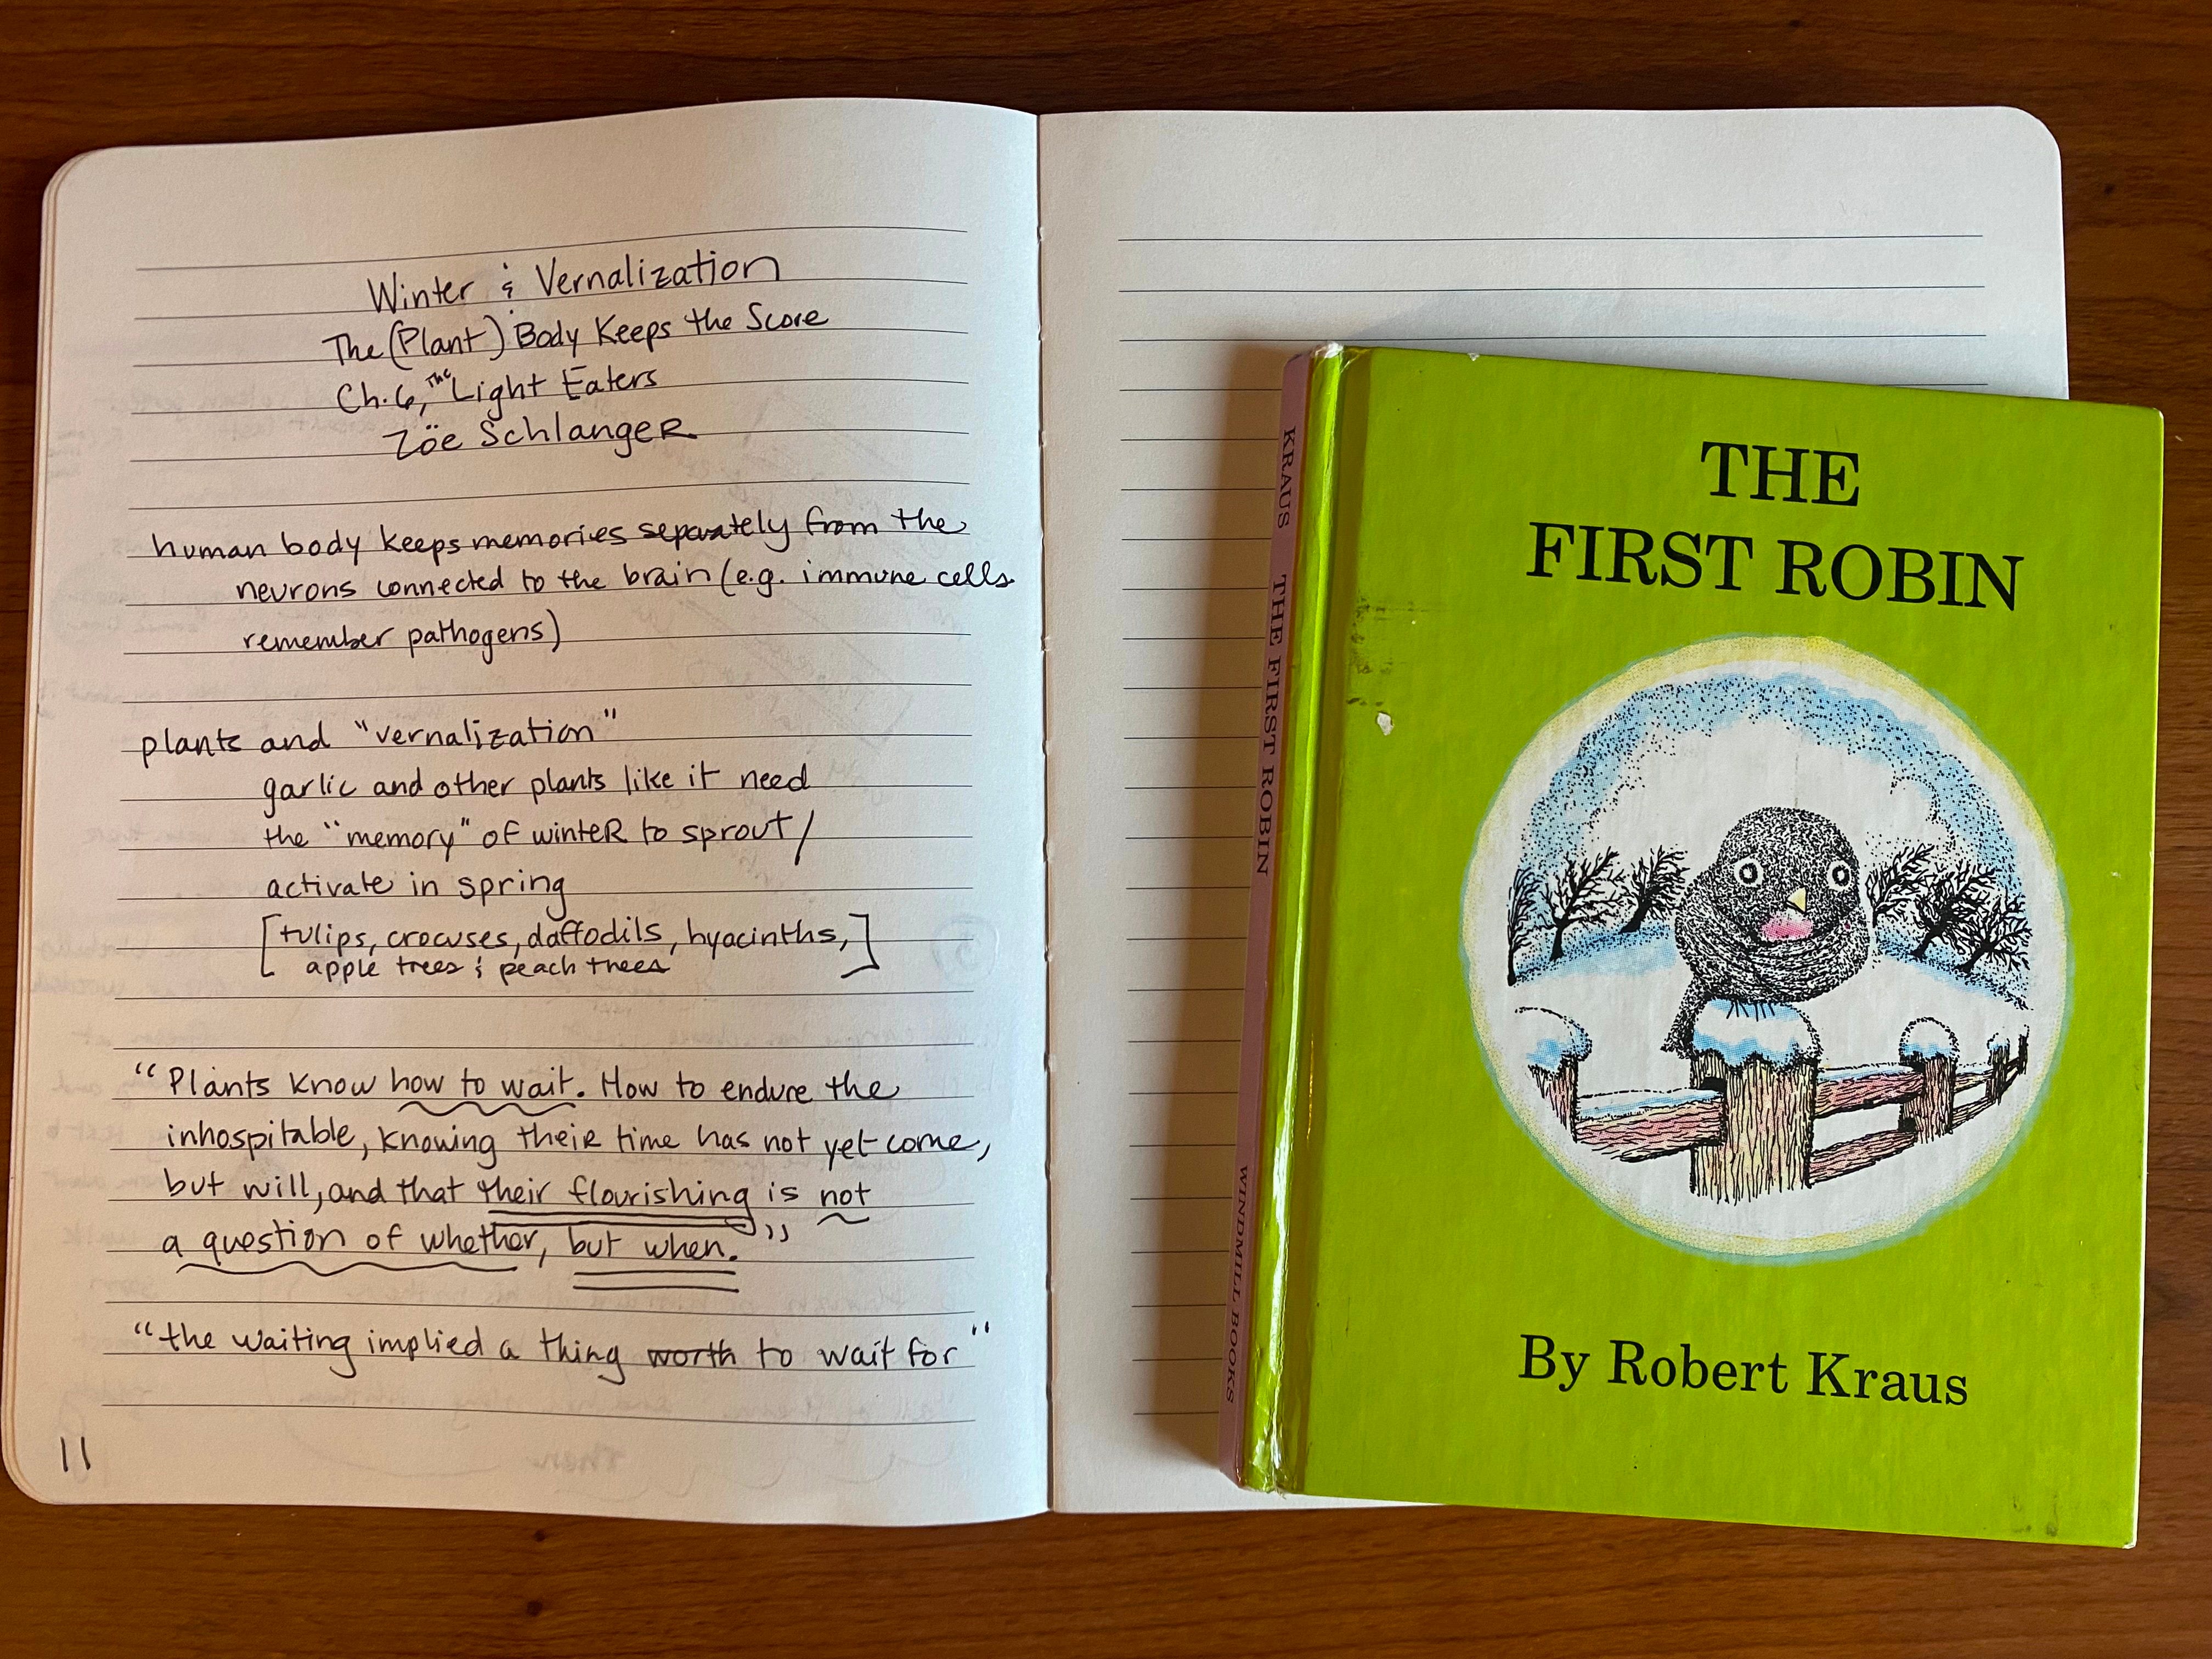 Winter & Vernalization
The (Plant) Body Keeps the Score
Ch. 6, The Light Eaters
Zöe Schlanger
human body keeps memories separately from the
neurons connected to the brain (e.g. immune cells
remember pathogens)
plants and "vernalization"
garlic and other plants like it need
the "memory" of winter to sprout/
activate in spring
[tulips, crocuses, daffodils, hyacinths,]
apple trees & peach trees
"Plants know how to wait. How to endure the
inhospitable, knowing their time has not yet come,
but will, and that their flourishing is not
a question of whether, but when."
"the waiting implied a thing worth to wait for"
11
KRAUS THE FIRST ROBIN WINDMILL BOOKS
THE
FIRST ROBIN
By Robert Kraus